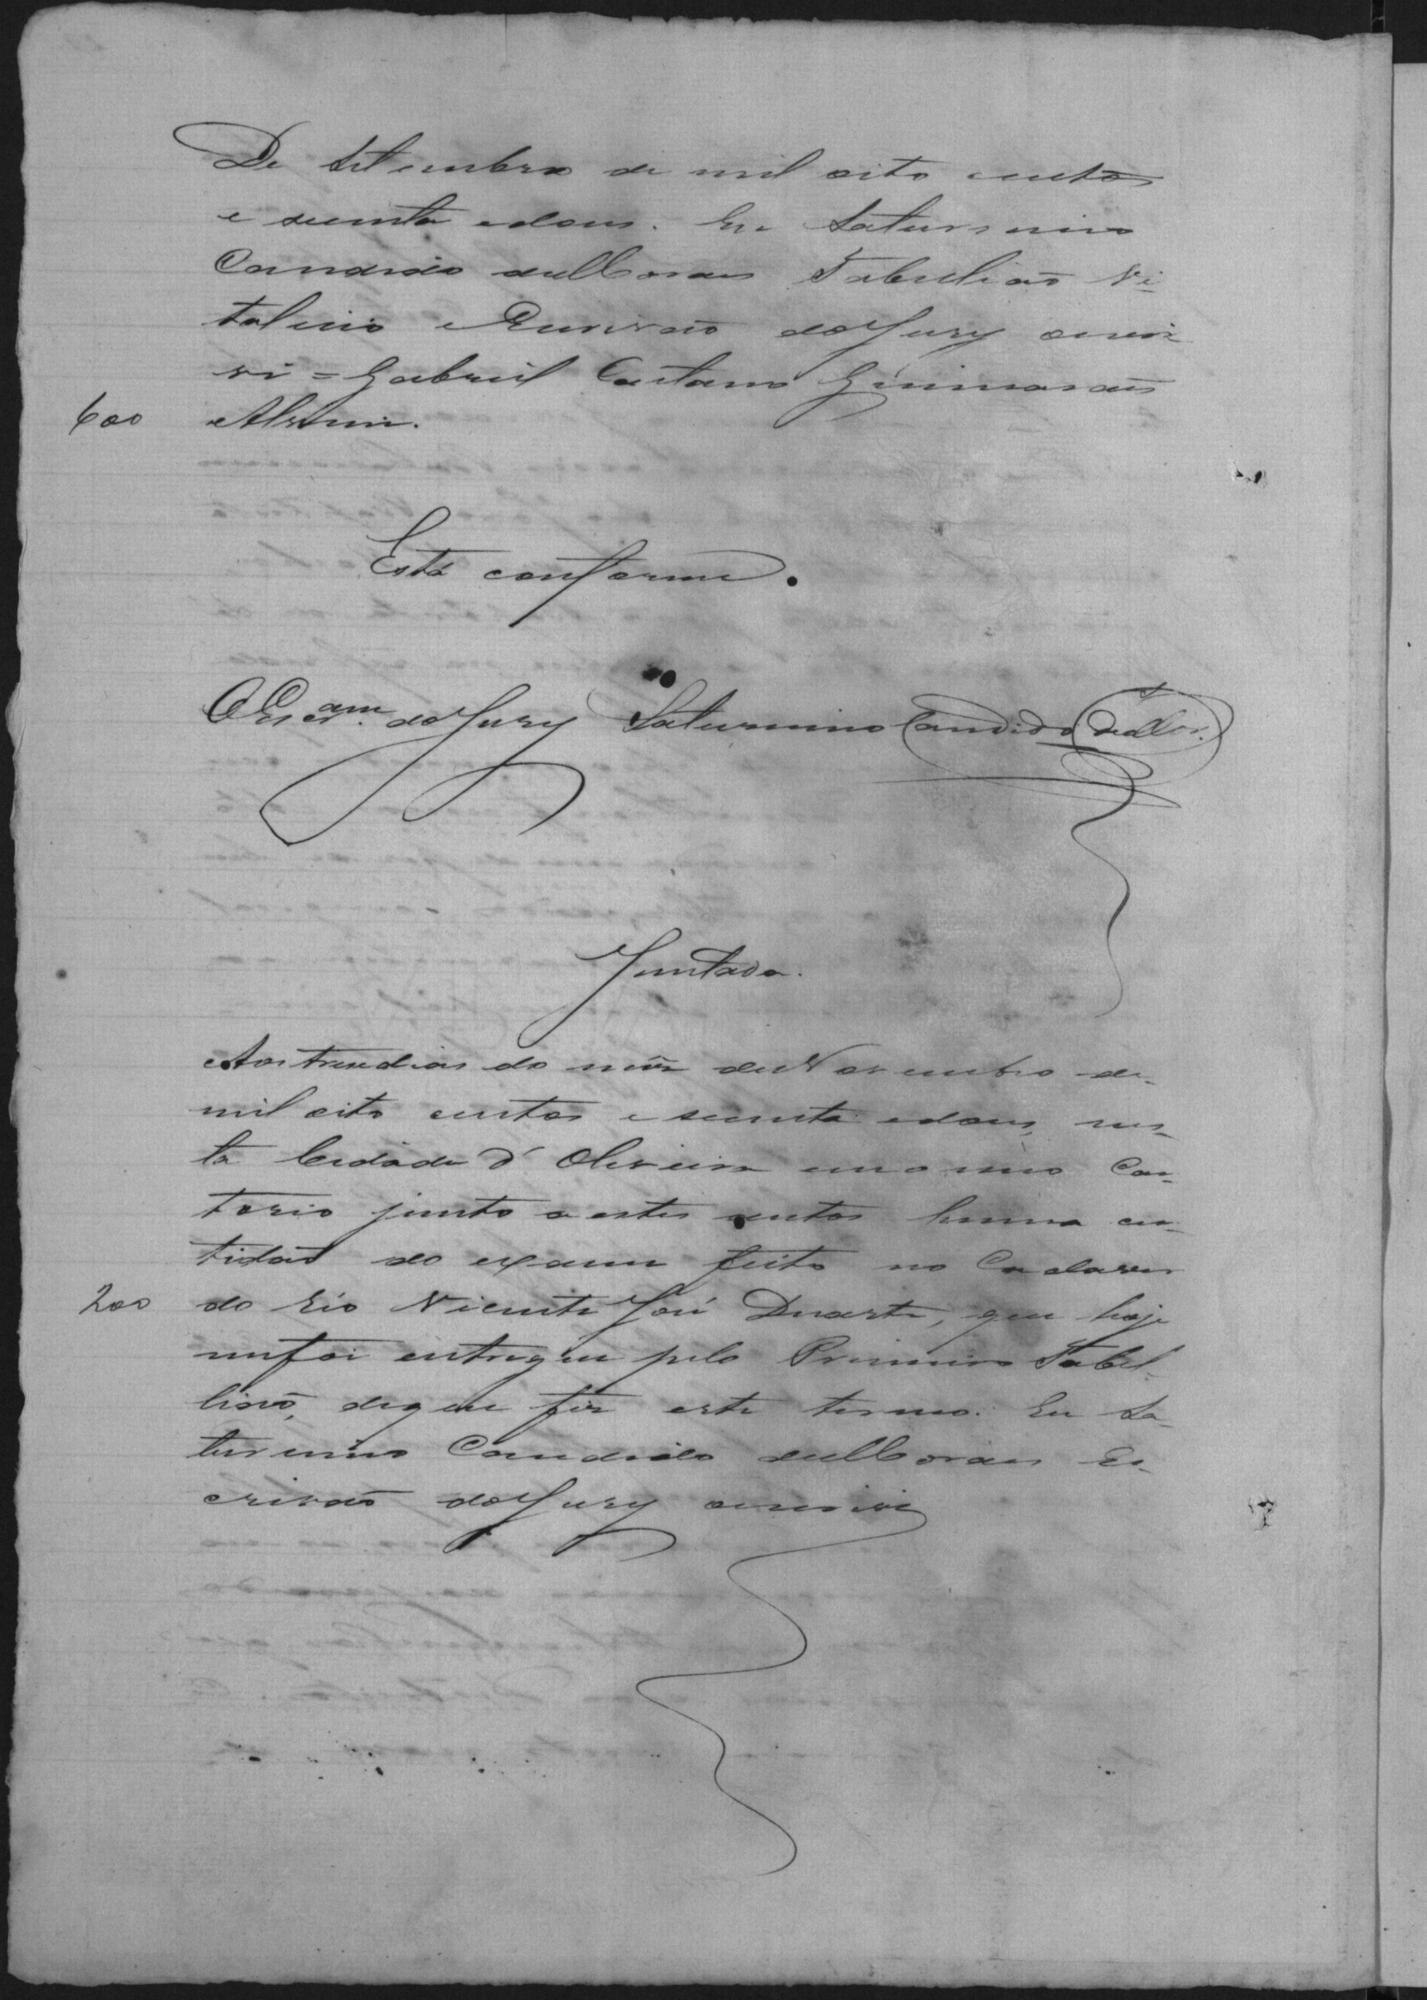 De Setembro de mil oito centos
e secenta e dous. Eu Saturnino
Candido de Moraes Tabelião Vi-
talicio e Escrivão do Jury escre-
vi = Gabriel Caetano Guimarães
600 Alvim.
Está conforme.
O Escr.am do Jury Saturnino Candido de Mor.
Juntada.
Aos tres dias do mez de Novembro de
mil oito centos e secenta e dous, nes-
ta Cidade d'Oliveira em o meo Car-
torio junto a estes autos huma cer-
tidão do exame feito no Cadaver
200 do Réo Vicente José Duarte, que hoje
me foi entregue pelo Primeiro Tabel-
lião, de que fiz este termo. Eu Sa-
turnino Candido de Moraes Es-
crivão do Jury escrevi